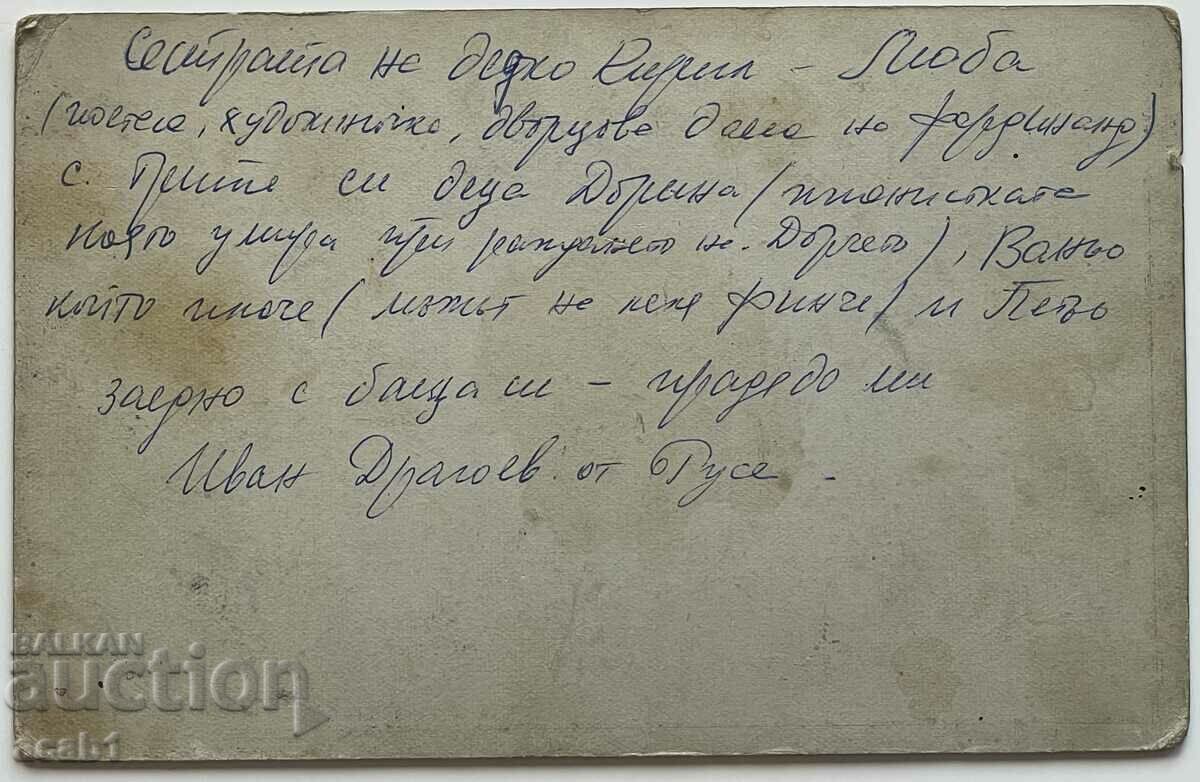 Сестрата на дядко Кирил – Люба
(поетеса, художничка, дворцова дама на Фердинанд)
с трите си деца Дорина (пианистката
която умира при раждането на Дорчето), Ваньо
който иначе (мъжът на леля Финче) и Петьо
заедно с баща си – прадедо ми
Иван Драгоев от Русе.
BALKAN
auction
acab1